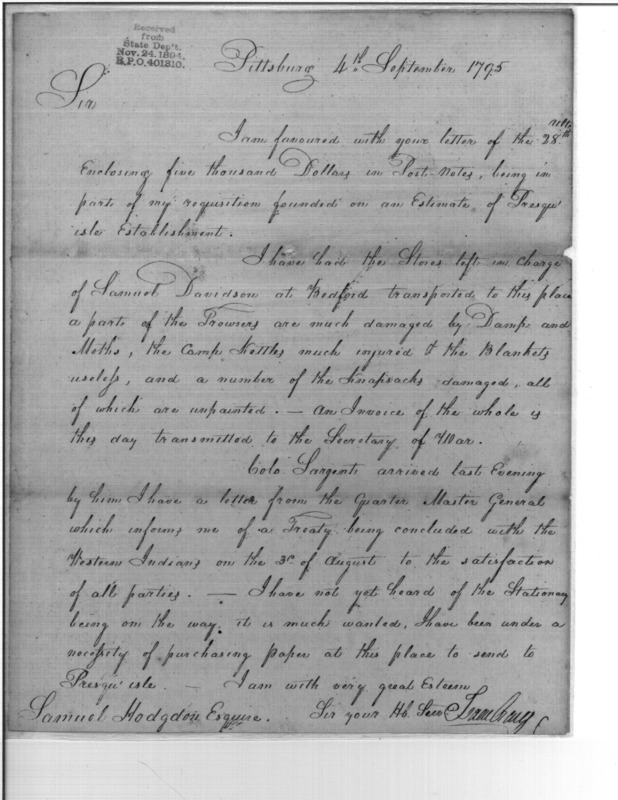 Received
from
State Dep't.
Nov. 24. 1894.
R.P.O. 401810.
Pittsburg 4th. September 1795
Sir
I am favoured with your letter of the 28th. ulto.
Enclosing five thousand Dollars in Post-Notes, being in
part of my requisition founded on an Estimate of Presqu'
isle Establishment.
I have had the Stores left in charge
of Samuel Davidson at Bedford transported to this place
a part of the Trowsers are much damaged by Damp and
Moths, the Camp Kettles much injured & the Blankets
useless, and a number of the Knapsacks damaged, all
of which are unpainted. — An Invoice of the whole is
this day transmitted to the Secretary of War.
Colo Sargent arrived last Evening
by him I have a letter from the Quarter Master General
which informs me of a Treaty being concluded with the
Western Indians on the 3d of August to the satisfaction
of all parties. — I have not yet heard of the Stationary
being on the way. it is much wanted, I have been under a
necessity of purchasing paper at this place to send to
Presqu' isle. — I am with very great Esteem
Samuel Hodgdon Esquire. Sir your Hb. Serv